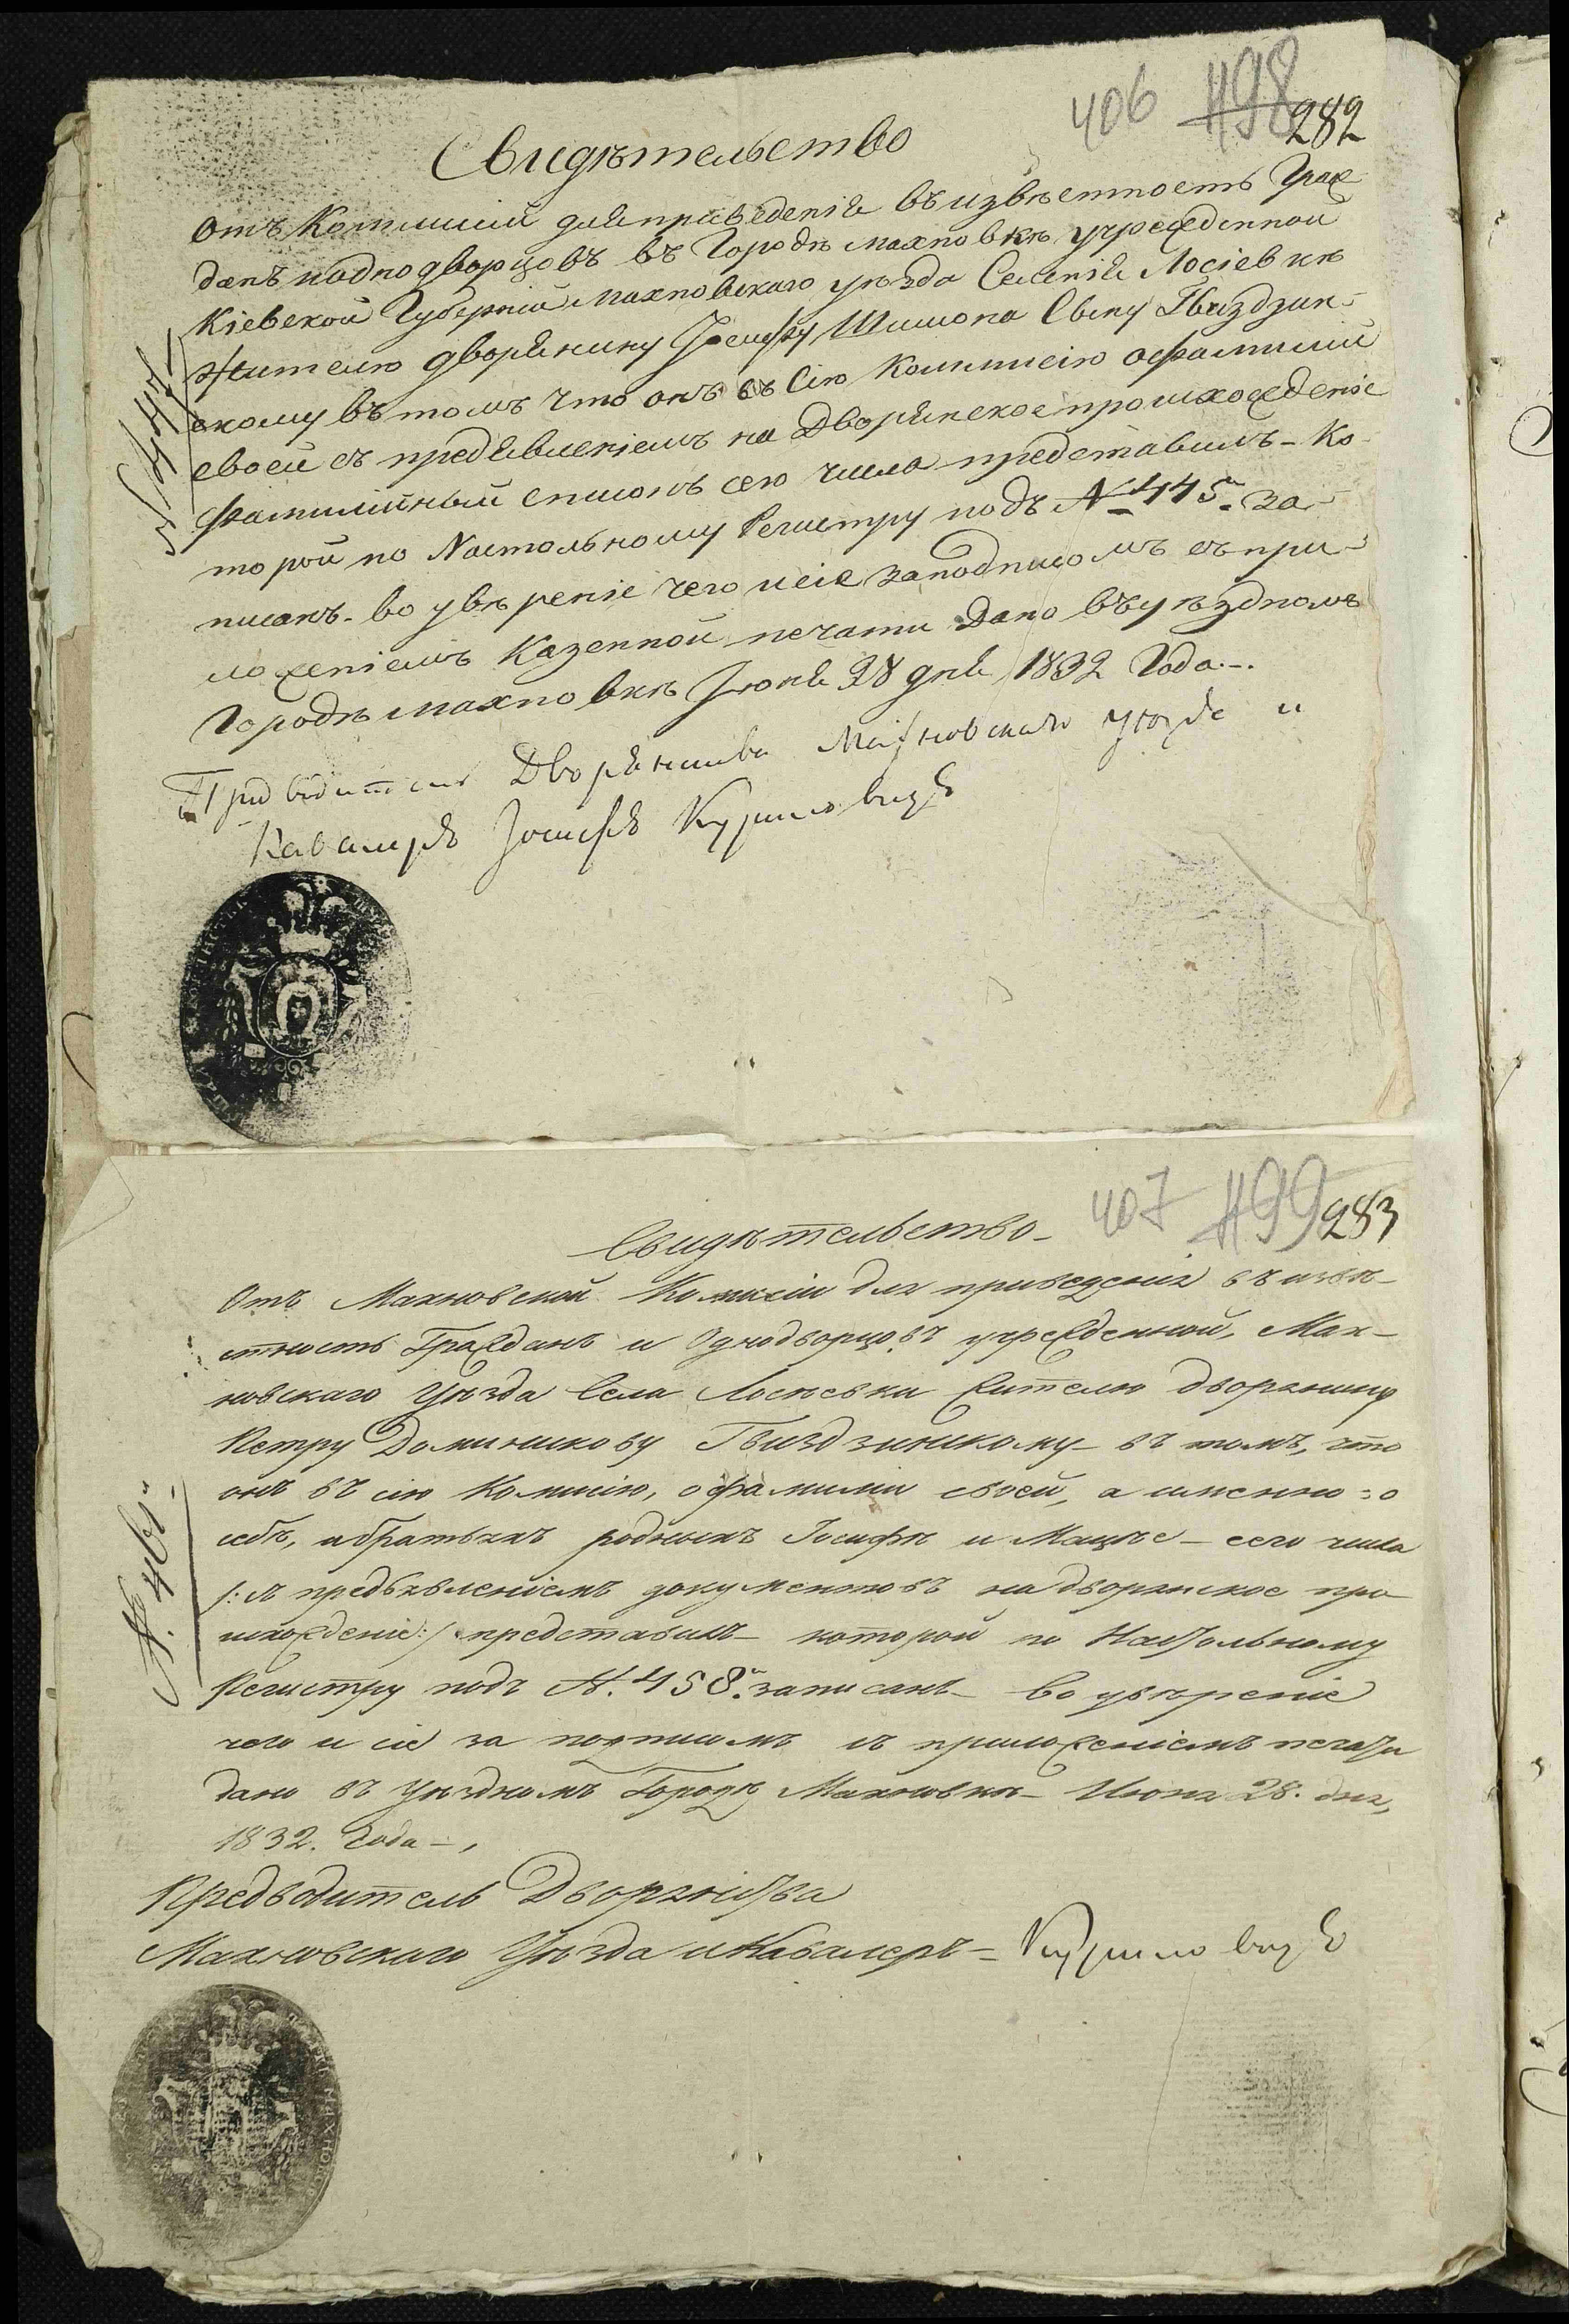 406 498 282
Свидѣтельство
Отъ Коммисiи для приведенiя въ извѣстность Граж-
данъ иоднодворцовъ въ Городѣ махновкѣ учрежденной
Кiевской Губернiи махновскаго уѣзда Селенiя Лосiевкѣ
жителю дворянину Iосифу Шимона Сыну Гвиздзин-
скому въ томъ что онъ въ Сiю Коммисiю офамилiи
своей съ предявленiемъ на Дворянское происхожденiе
фамилiйный списокъ сего числа представилъ - Ко-
торой по Настольному Регистру подъ № 445м за-
писанъ - во увѣренiе чего исiе заподписомъ съ при-
ложенiемъ Казенной печати Дано въуѣздномъ
Городѣ махновкѣ Iюня 28 дня 1832 Года.-.
Предводитель Дворянства Махновскаго уезда и
Кавалеръ Iосифъ Куриловичъ
407 499 283
Свидѣтельство -
Отъ Махновской Комисiи для приведенiя въ извѣ-
стность Гражданъ и Однодворцовъ учрежденной, Мах-
новскаго Уѣзда Села Лосѣевки жителю дворянину
Петру Доминикову Гвиздзинскому - въ томъ, что
онъ въ сiю Комисiю, о фамилiи своей, а именно: о
себѣ, ибратьяхъ родныхъ Iосифѣ и Мацѣе - сего числа
/: съ предъявленiемъ документовъ на дворянское про
исхожденiе :/ представилъ - которой по Настольному
Регистру подъ №. 458.м записанъ - Во увѣренiе
чего и сiе за подписомъ съ приложенiемъ печати
дано въ Уѣздномъ Городѣ Махновкѣ - Июня 28. дня,
1832. Года -,
Предводитель Дворянства
Махновскаго Уѣзда иКавалеръ - Куриловичъ